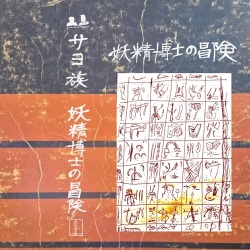 サヨ族 妖精博士の冒険
妖精博士の冒険